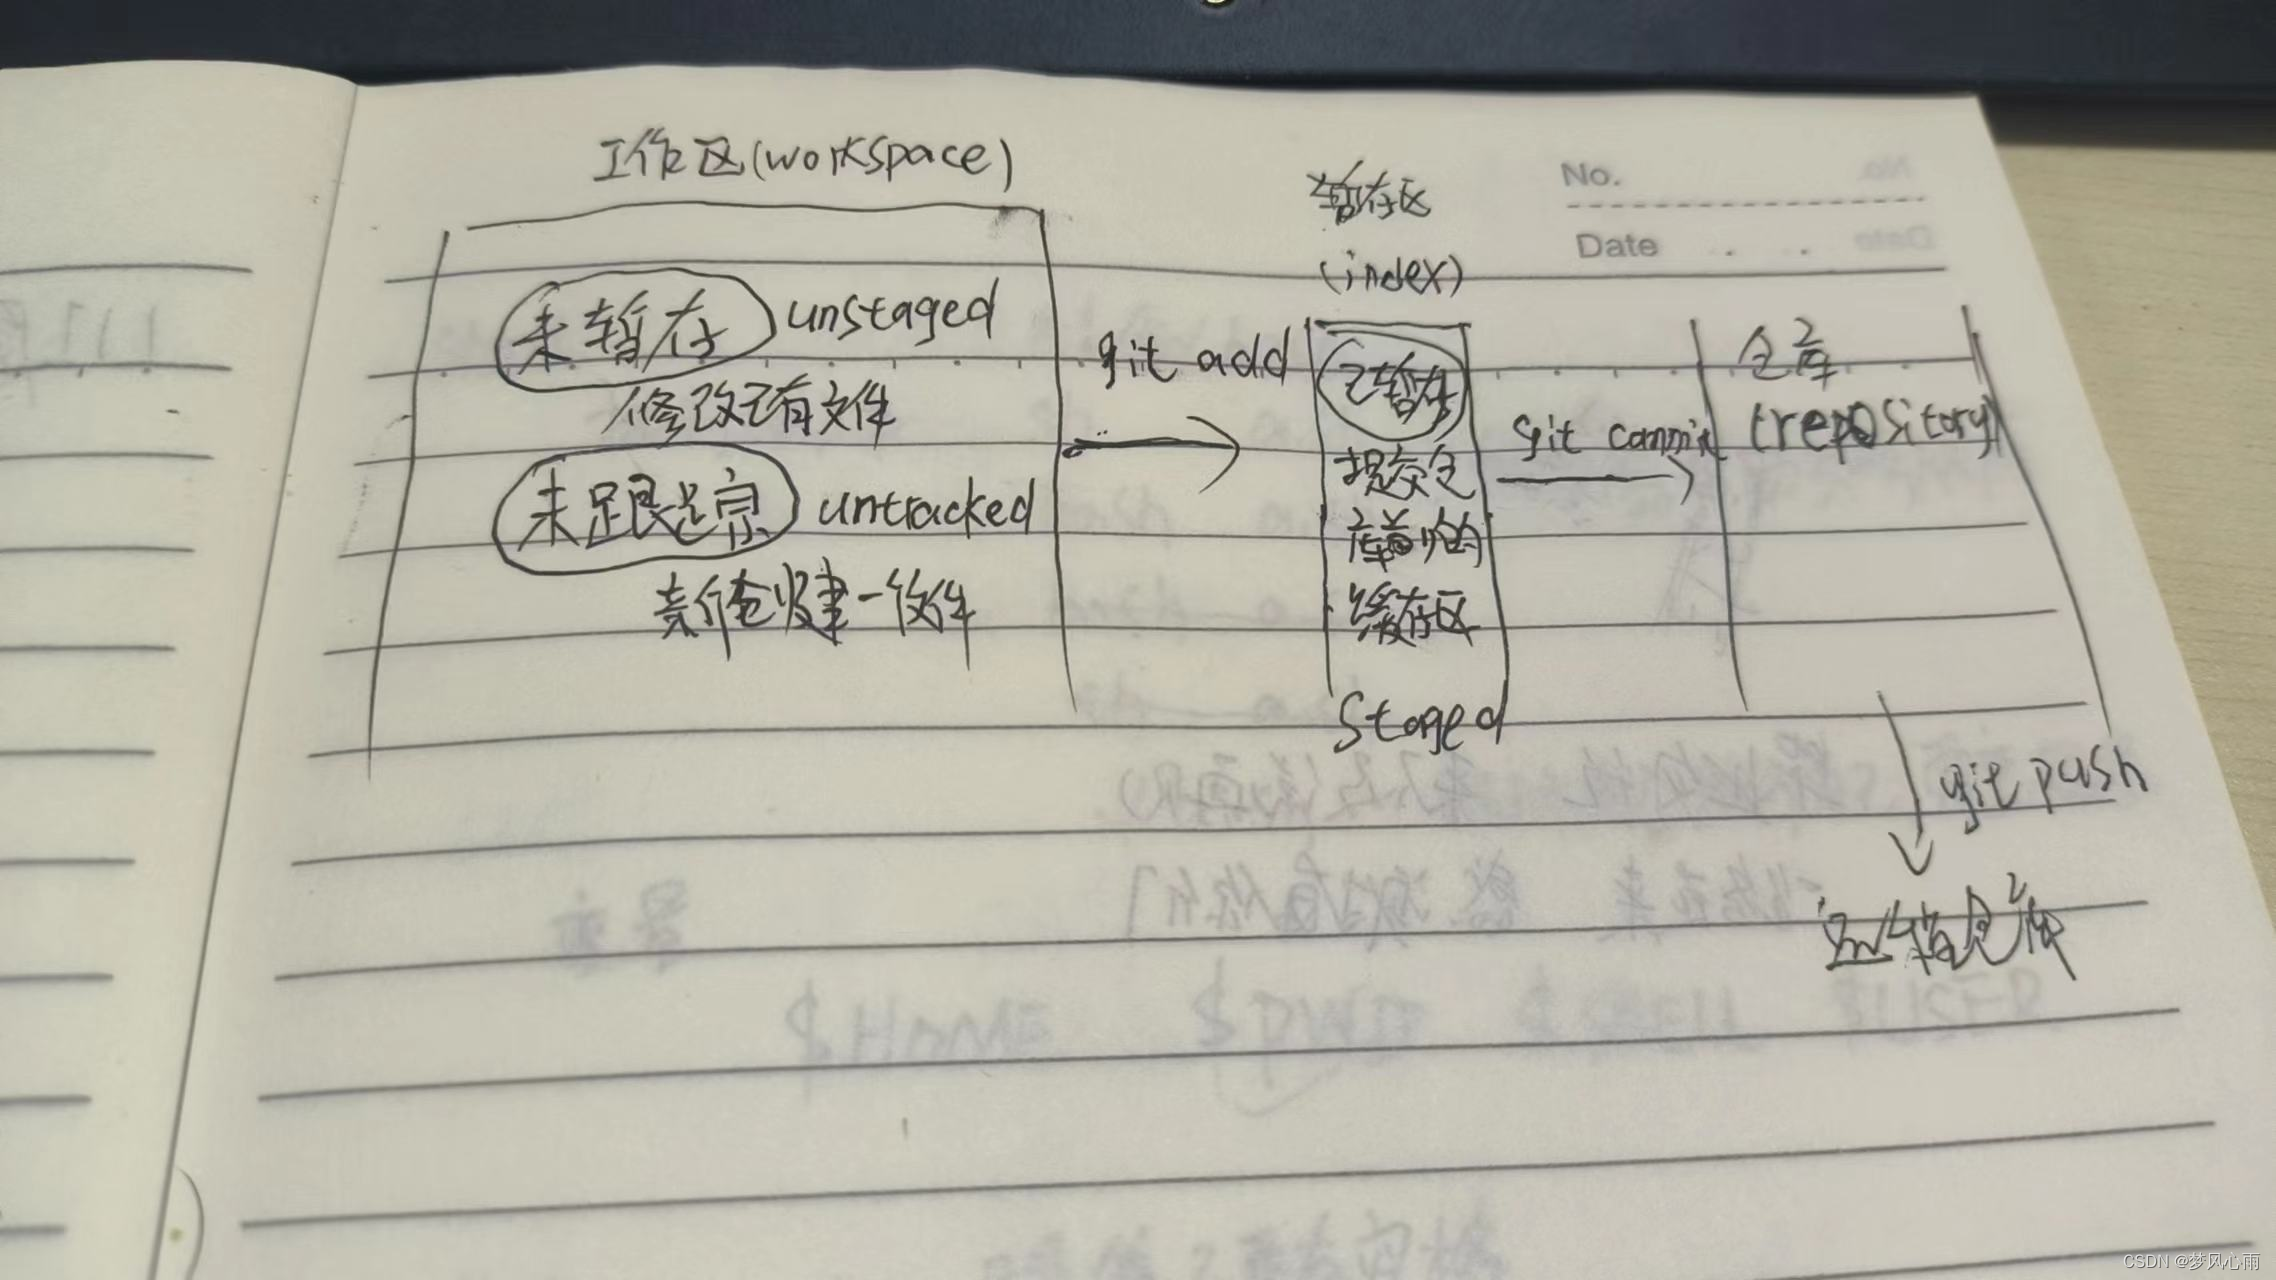 工作区(workspace)
No.
暂存区
Date
(index)
未暂存 unstaged
git add
已暂存
仓库
修改已有文件
git commit
(repository)
提交仓
未跟踪 untracked
库前的
新建一个文件
缓存区
staged
git push
远端仓库
CSDN @梦风心雨